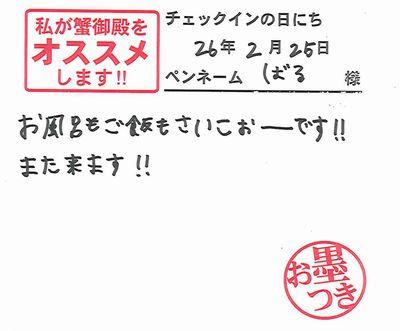 私が蟹御殿を
オススメ
します!!
チェックインの日にち
26年2月25日
ペンネーム しばる 様
お風呂もご飯もさいこおーです!!
また来ます!!
お墨つき